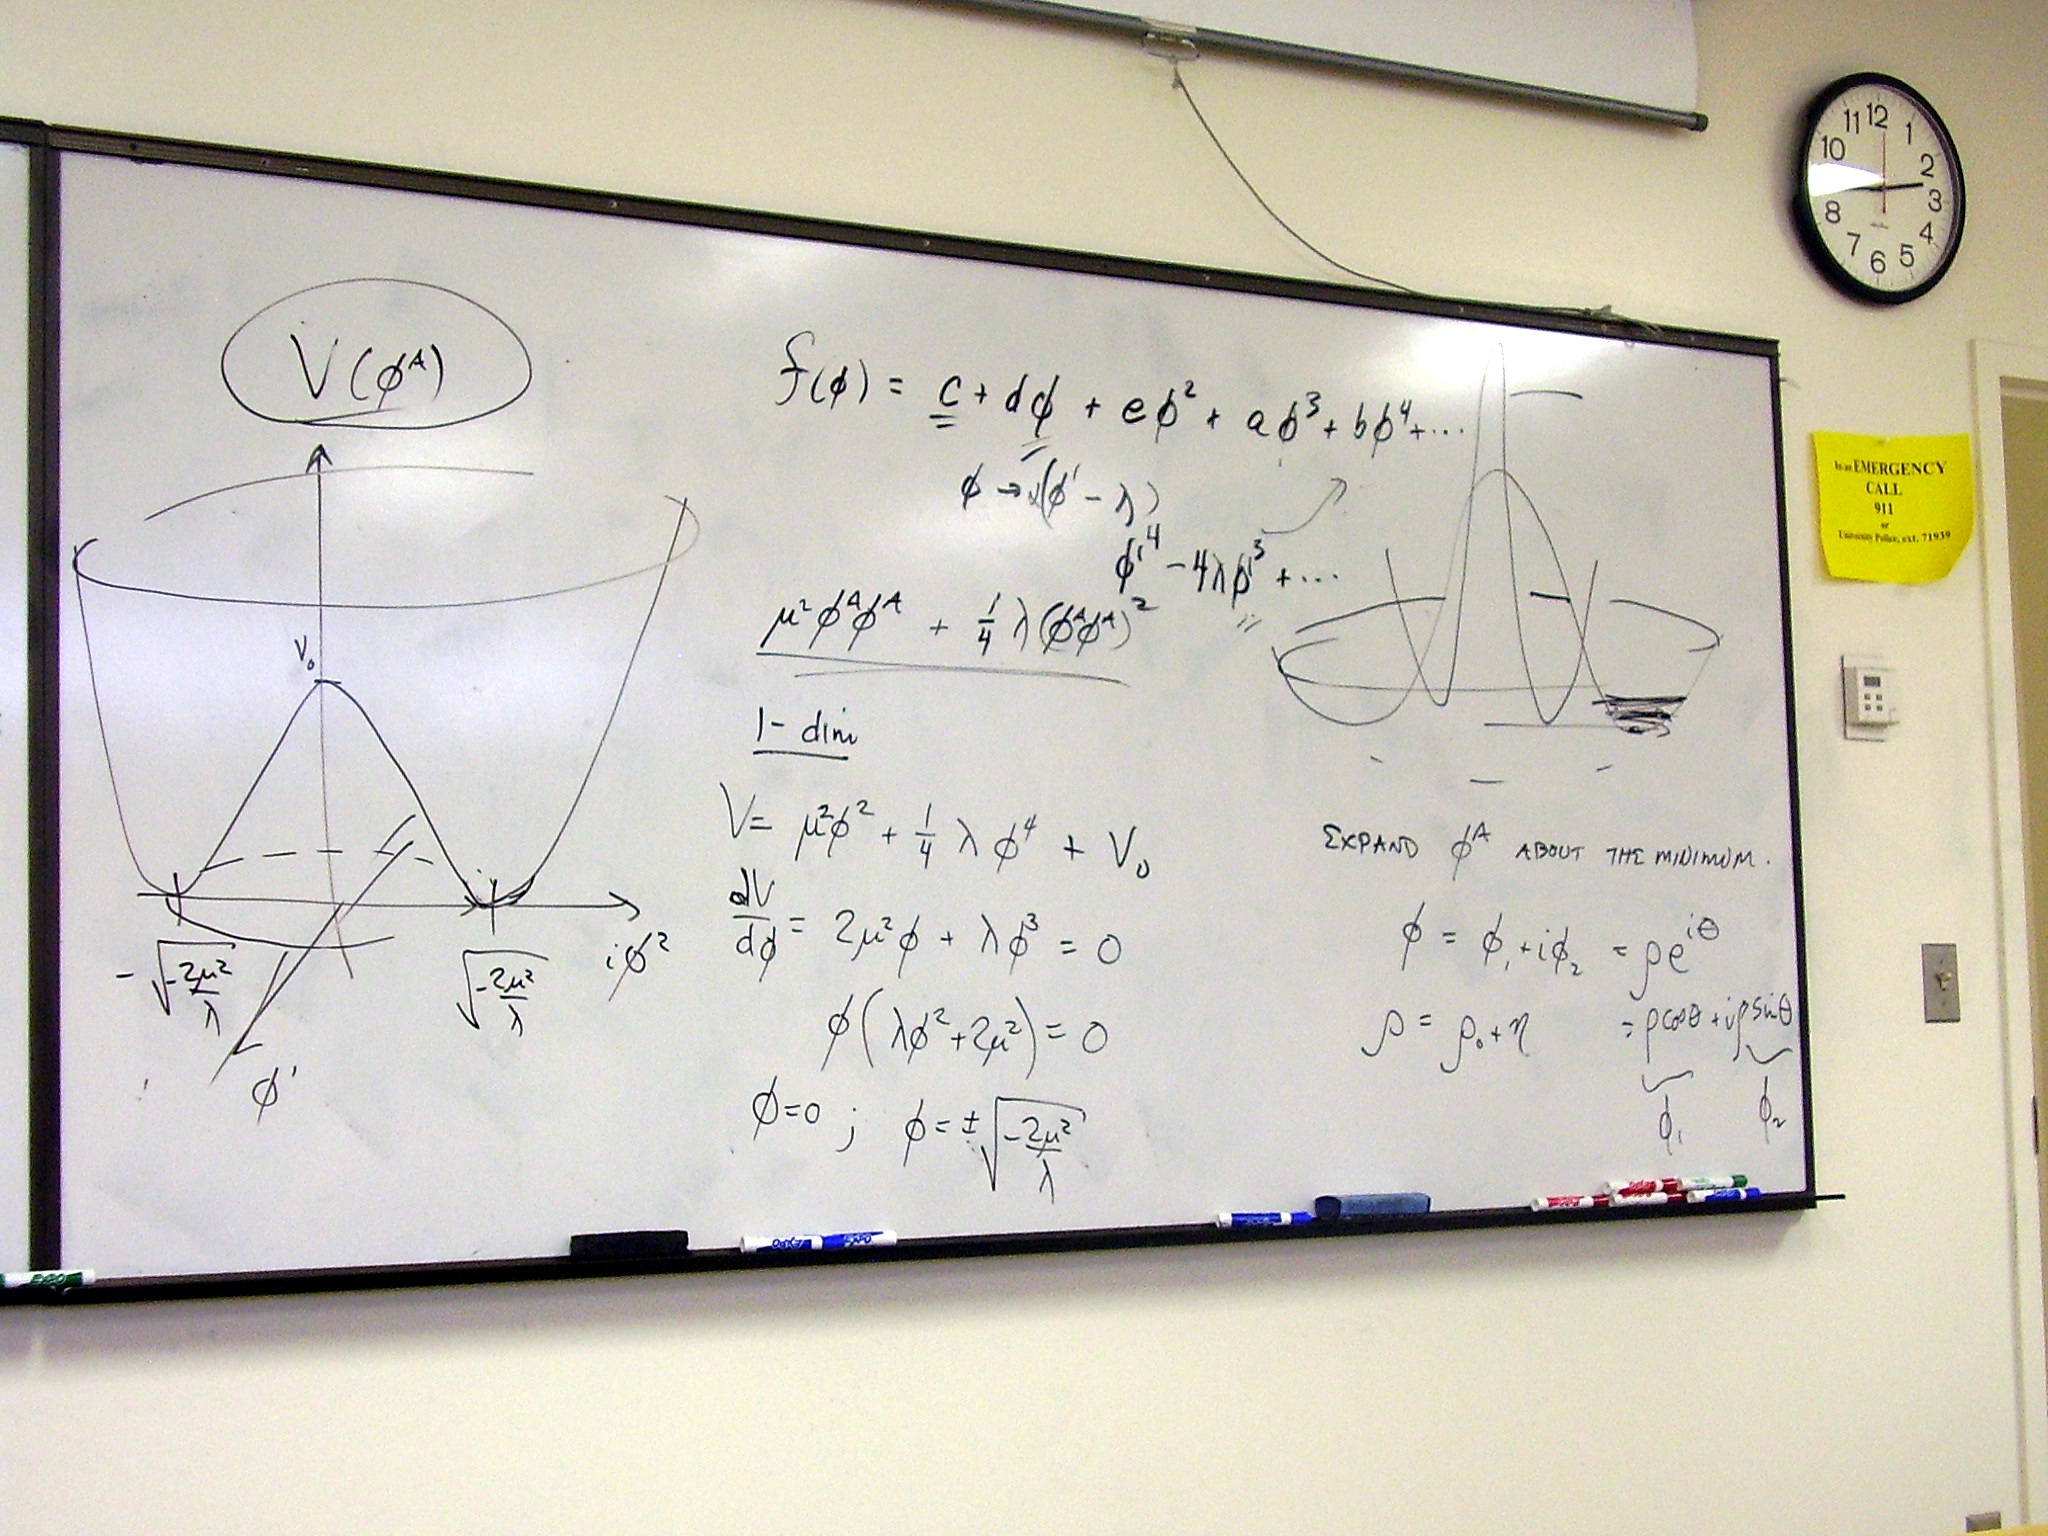 V(ϕᴬ)
V₀
-√(-2μ²/λ)
√(-2μ²/λ)
iϕ²
ϕ'
f(ϕ) = c + dϕ + eϕ² + aϕ³ + bϕ⁴ + ...
ϕ → (ϕ' - λ)
ϕ'⁴ - 4λϕ'³ + ...
μ²ϕᴬϕᴬ + 1/4 λ(ϕᴬϕᴬ)²
1-dim
V = μ²ϕ² + 1/4 λϕ⁴ + V₀
dV/dϕ = 2μ²ϕ + λϕ³ = 0
ϕ(λϕ² + 2μ²) = 0
ϕ=0 ; ϕ = ±√(-2μ²/λ)
EXPAND ϕᴬ ABOUT THE MINIMUM.
ϕ = ϕ₁ + iϕ₂ = ρe^(iθ)
ρ = ρ₀ + η = ρcosθ + iρsinθ
ϕ₁ ϕ₂
12
1
2
3
4
5
6
7
8
10
11
In an EMERGENCY
CALL
911
or
University Police, ext. 71939
EXPO
EXPO